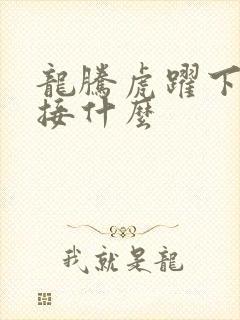 龍騰虎躍下
接什麼
我就是龍